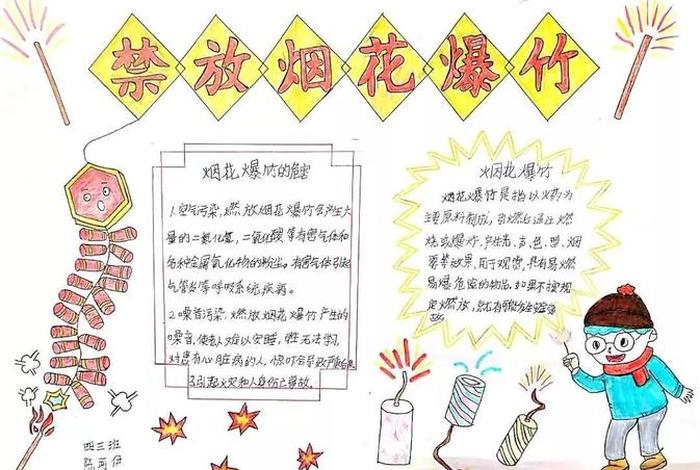 禁放烟花爆竹
烟花爆竹的危害
1.空气污染,燃放烟花爆竹会产生大
量的二氧化氮,二氧化硫等有害气体和
各种金属氧化物的粉尘。有害气体引起
气管炎等呼吸系统疾病。
2.噪音污染,燃放烟花爆竹产生的
噪音,使老人难以安睡,学生无法学习,
对患有心脏病的人,惊吓会导致严重后果
3.引起火灾和人身伤亡事故。
烟花爆竹
烟花爆竹是指以火药为
主要原料制成,引燃后通过燃
烧或爆炸,产生光、声、色、型、烟
雾等效果,用于观赏,具有易燃
易爆危险的物品,如果不按规
定燃放,
四三班
陈